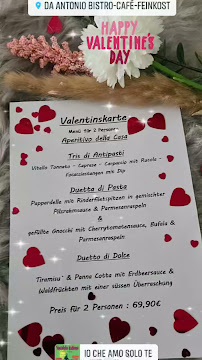 DA ANTONIO BISTRO-CAFÉ-FEINKOST
HAPPY
VALENTINE'S
DAY
Valentinskarte
Menü für 2 Personen
Aperitivo della Casa
Tris di Antipasti
Vitello Tonnato - Caprese - Carpaccio mit Rucola -
mit Dip
Duetto di Pasta
Pappardelle mit Rinderfiletspitzen in gemischter
Pilzrahmsauce & Parmesanraspeln
&
gefüllte Gnocchi mit Cherrytomatensauce, Bufala &
Parmesanraspeln
Duetto di Dolce
Tiramisu` & Panna Cotta mit Erdbeersauce &
Waldfrüchten mit einer süssen Überraschung
Preis für 2 Personen : 69,90€
IO CHE AMO SOLO TE